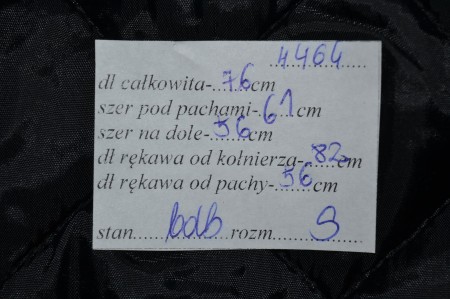 4464
dł całkowita-76cm
szer pod pachami-61cm
szer na dole-56cm
dł rękawa od kołnierza-82cm
dł rękawa od pachy-56cm
stan......bdb..rozm......S